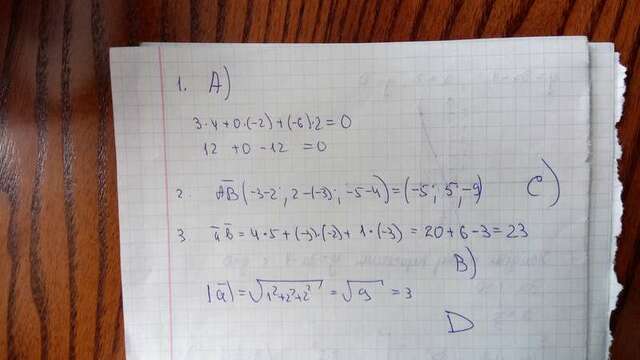 1. A)
3·4+0·(-2)+(-6)·2=0
12 +0-12 =0
2. A̅B̅(-3-2; 2-(-3); -5-4)=(-5; 5; -9) C)
3 a̅ b̅ = 4·5+(-3)·(-2)+1·(-3) = 20+6-3=23
B)
|a̅|=√1²+2²+2² = √9 = 3
D